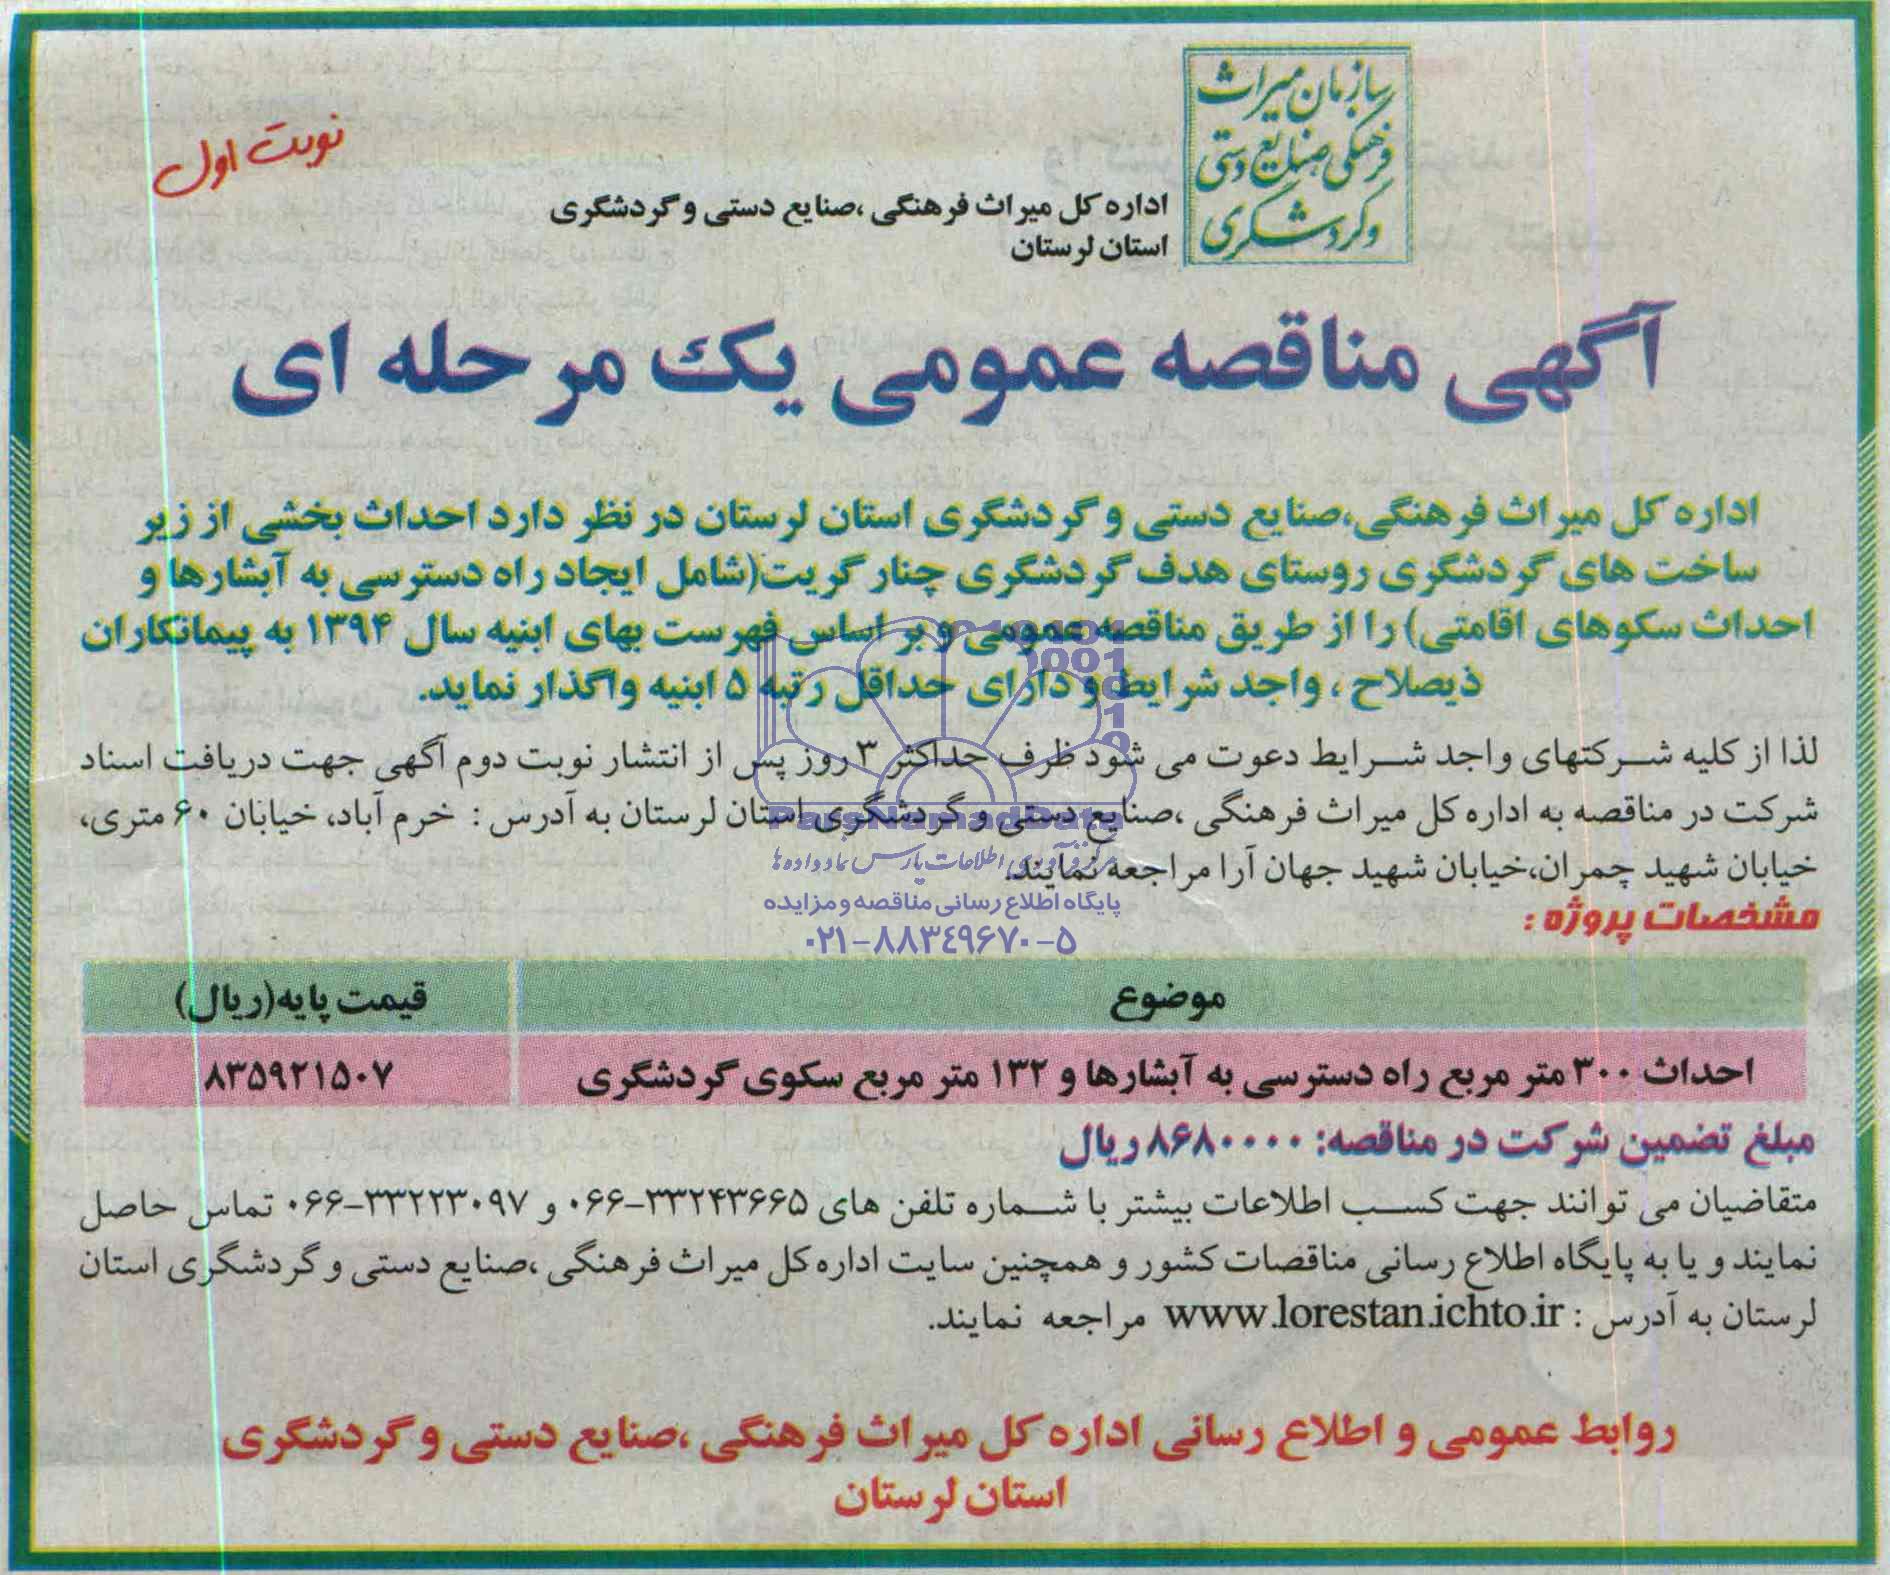 سازمان میراث
فرهنگی صنایع دستی
و گردشگری
نوبت اول
اداره کل میراث فرهنگی ،صنایع دستی و گردشگری
استان لرستان
آگهی مناقصه عمومی یک مرحله ای
اداره کل میراث فرهنگی،صنایع دستی و گردشگری استان لرستان در نظر دارد احداث بخشی از زیر
ساخت های گردشگری روستای هدف گردشگری چنار گریت(شامل ایجاد راه دسترسی به آبشارها و
احداث سکوهای اقامتی) را از طریق مناقصه عمومی و بر اساس فهرست بهای ابنیه سال ۱۳۹۴ به پیمانکاران
ذیصلاح ، واجد شرایط و دارای حداقل رتبه ۵ ابنیه واگذار نماید.
لذا از کلیه شرکتهای واجد شرایط دعوت می شود ظرف حداکثر ۳ روز پس از انتشار نوبت دوم آگهی جهت دریافت اسناد
شرکت در مناقصه به اداره کل میراث فرهنگی ،صنایع دستی و گردشگری استان لرستان به آدرس : خرم آباد، خیابان ۶۰ متری،
خیابان شهید چمران،خیابان شهید جهان آرا مراجعه نمایند.
ParsNamadData
مرکز فرآوری اطلاعات پارس نماد داده ها
پایگاه اطلاع رسانی مناقصه و مزایده
۰۲۱-۸۸۳۴۹۶۷۰-۵
مشخصات پروژه :
موضوع قیمت پایه(ریال)
احداث ۳۰۰ متر مربع راه دسترسی به آبشارها و ۱۳۲ متر مربع سکوی گردشگری ۸۳۵۹۲۱۵۰۷
مبلغ تضمین شرکت در مناقصه: ۸۶۸۰۰۰۰۰ ریال
متقاضیان می توانند جهت کسب اطلاعات بیشتر با شماره تلفن های ۳۳۲۴۳۶۶۵-۰۶۶ و ۳۳۲۲۳۰۹۷-۰۶۶ تماس حاصل
نمایند و یا به پایگاه اطلاع رسانی مناقصات کشور و همچنین سایت اداره کل میراث فرهنگی ،صنایع دستی و گردشگری استان
لرستان به آدرس : www.lorestan.ichto.ir مراجعه نمایند.
روابط عمومی و اطلاع رسانی اداره کل میراث فرهنگی ،صنایع دستی و گردشگری
استان لرستان